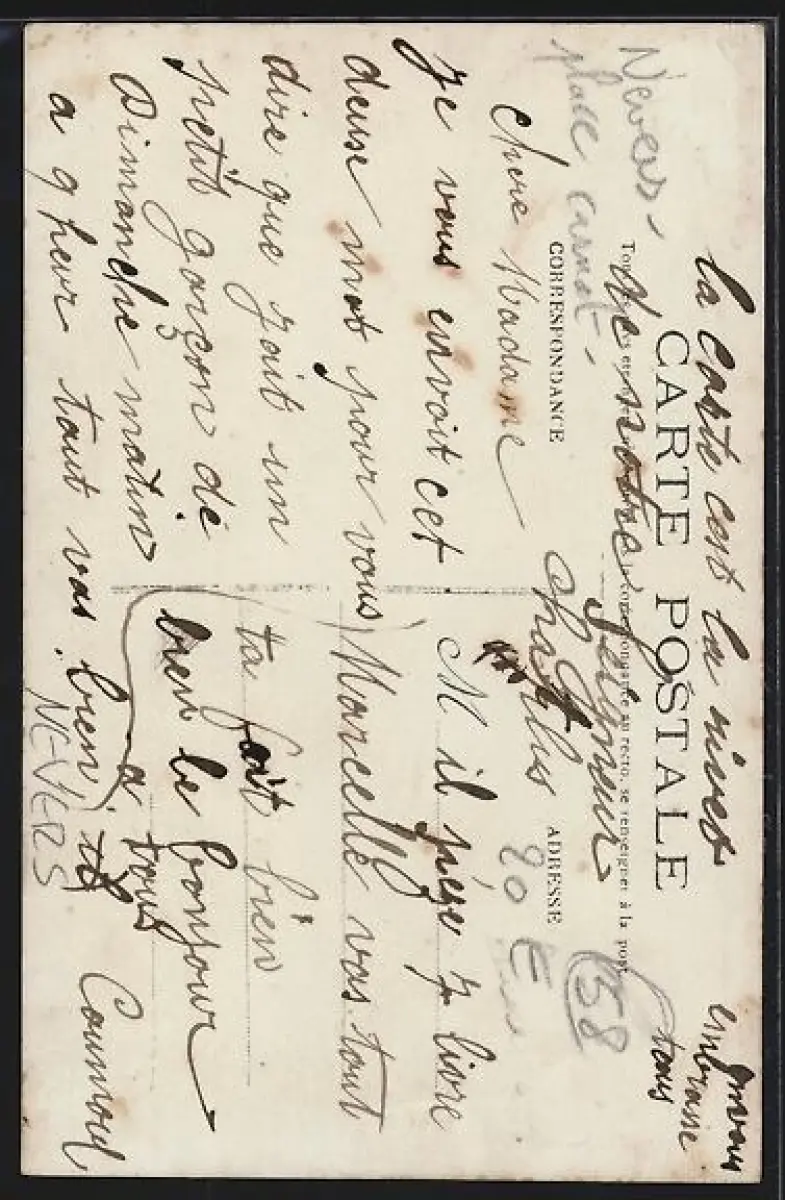 la carte est la nives
CARTE POSTALE
de notre
Seigneur
CORRESPONDANCE
ADRESSE
Nevers -
place carnot -
chere Madame
Je vous envoit cet
deuse mot pour vous
dire que jait un
petit garçon de
Dimanche matin
a 9 heur tout vas bien
Charlus
M il pese 7 livre
Marcelle vas tout
ta fait bien
bien le bonjour
a tous
NEVERS
20 €
58
embrasse
tous